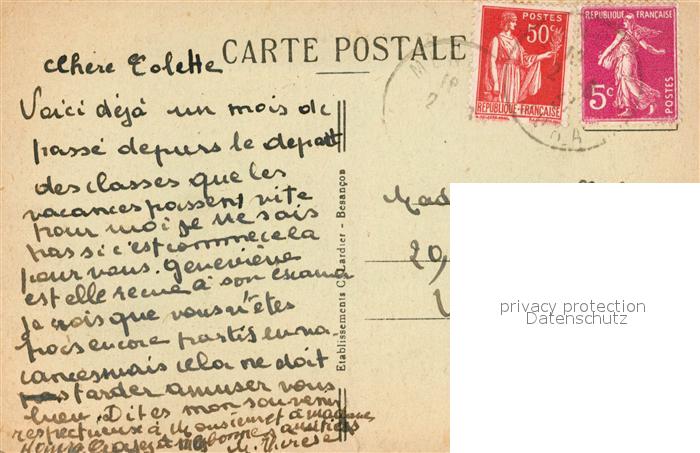 CARTE POSTALE
chère Colette
Voici déjà un mois de
passé depuis le depart
des classes que les
vacances passent vite
pour moi je ne sais
pas si c'est comme cela
pour vous. Geneviève
est elle recue à son examen
je crois que vous n'êtes
pas encore partis en va-
cances mais cela ne doit
pas tarder amuser vous
bien. Dites mon souvenir
respectueux à Monsieur et à madame
bonnes amitiés
Etablissements C. Lardier - Besançon
POSTES
50c
REPUBLIQUE-FRANÇAISE
REPUBLIQUE FRANÇAISE
5c
POSTES
Mad
20,
privacy protection
Datenschutz